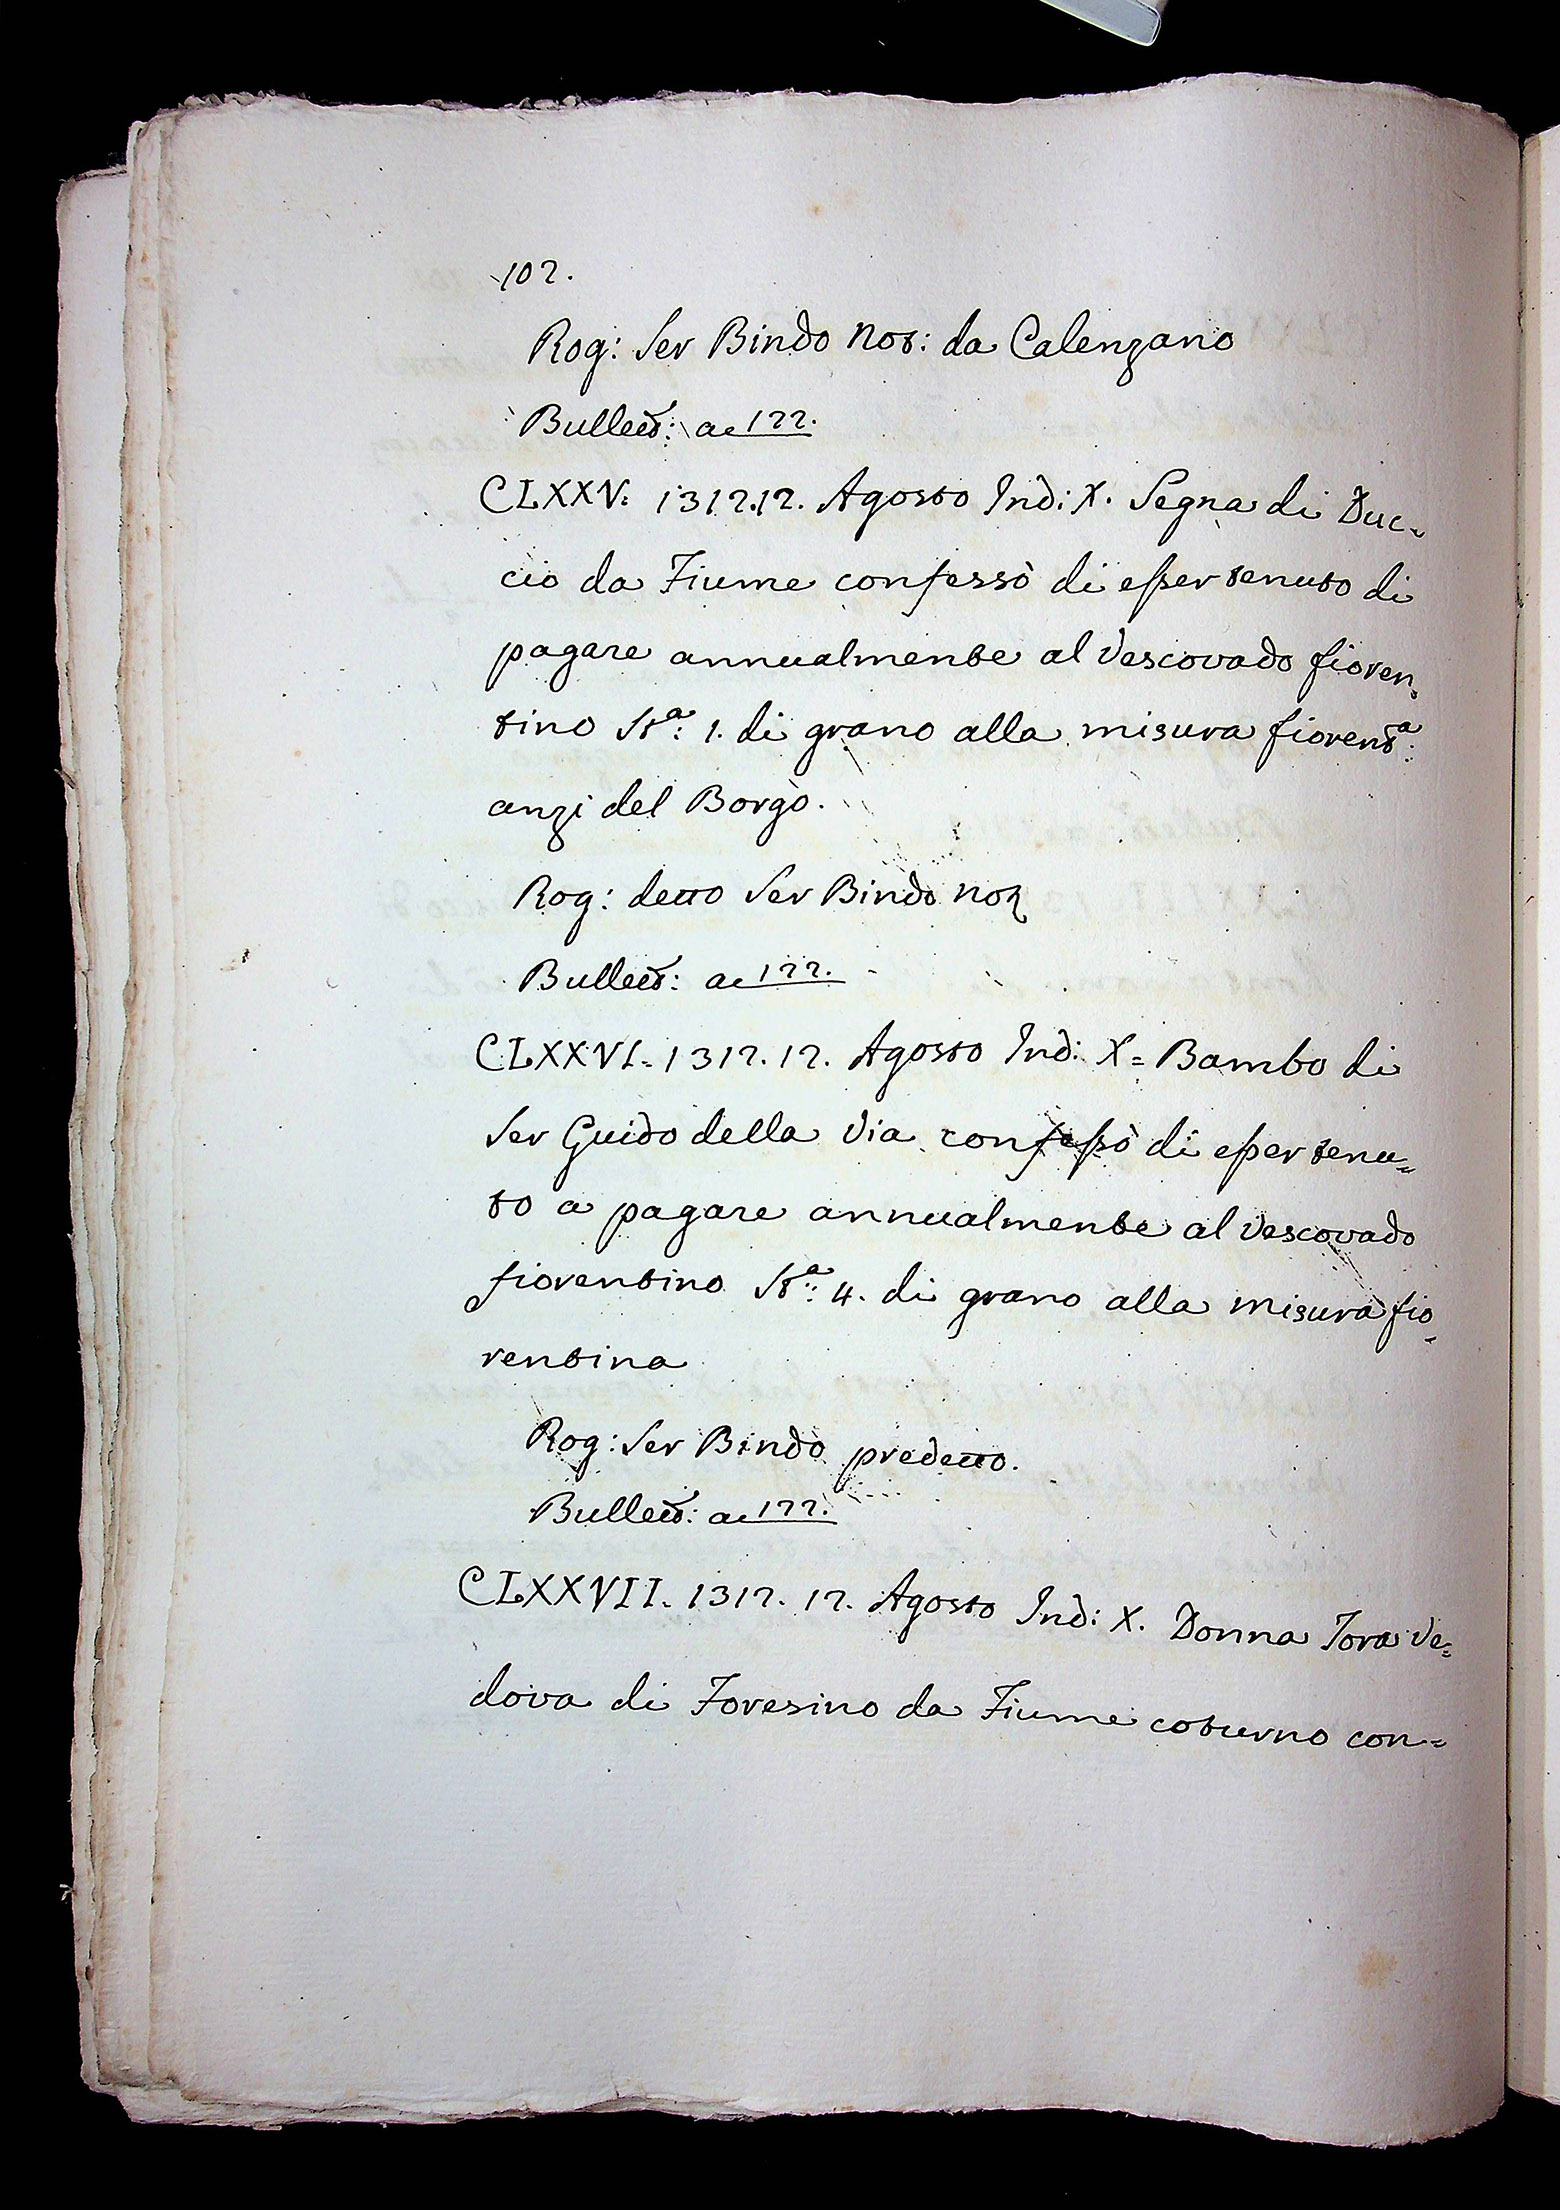 102.
Rog: Ser Bindo Not: da Calenzano
Bullett: a 122.
CLXXV. 1312.12. Agosto Ind: X. Segna di Duc=
cio da Fiume confessò di esser tenuto di
pagare annualmente al Vescovado fioren=
tino Sta: 1. di grano alla misura fiorenta:
anzi del Borgo.
Rog: detto Ser Bindo not
Bullett: a 122.
CLXXVI. 1312. 12. Agosto Ind: X= Bambo di
Ser Guido della Via confessò di esser tenu=
to a pagare annualmente al Vescovado
fiorentino Sta: 4. di grano alla misura fio=
rentina
Rog: Ser Bindo predetto.
Bullett: a 122.
CLXXVII. 1312. 12. Agosto Ind: X. Donna Tora Ve=
dova di Foresino da Fiume coturno con=